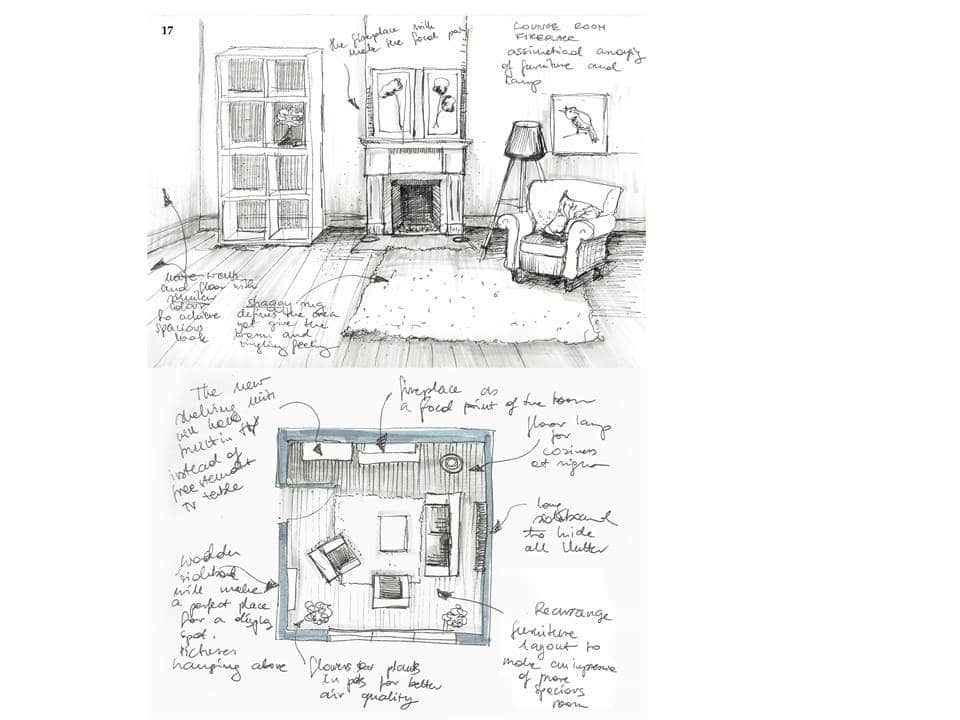 17
the fireplace will
make the focal
LOUNGE ROOM
FIREPLACE
of furniture and
lamp
have walls
and floor with
similar
colour
to achieve
spacious
look
shaggy rug
defines the area
yet give the
warm and
feeling
The new
shelving unit
will have
built in
instead of
TV table
fireplace as
a focal point of the room
floor lamp
for
cosiness
at
long
to hide
all clutter
wooden
will make
a perfect place
for a display
spot.
Pictures
hanging above
flowers or plants
in pots for better
air quality
Rearrange
furniture
layout to
make an
of more
spacious
room